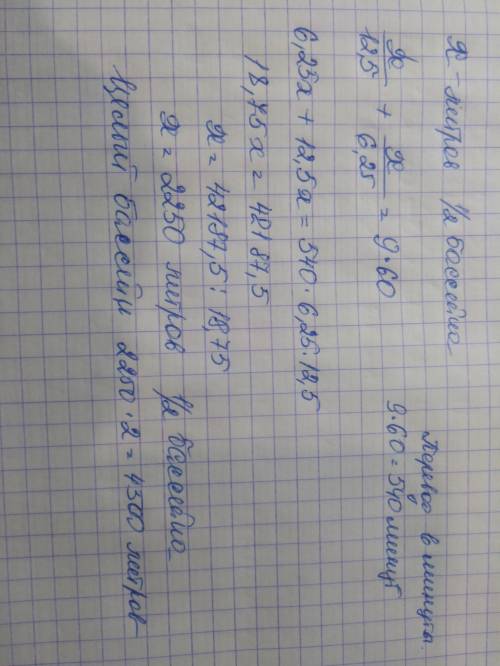 x - литров 1/2 бассейна
x/12,5 + x/6,25 = 9·60
Перевод в минуты.
9·60=540 минут
6,25x + 12,5x = 540·6,25·12,5
18,75x = 42187,5
x = 42187,5 : 18,75
x = 2250 литров 1/2 бассейна
Целый бассейн 2250·2=4500 литров